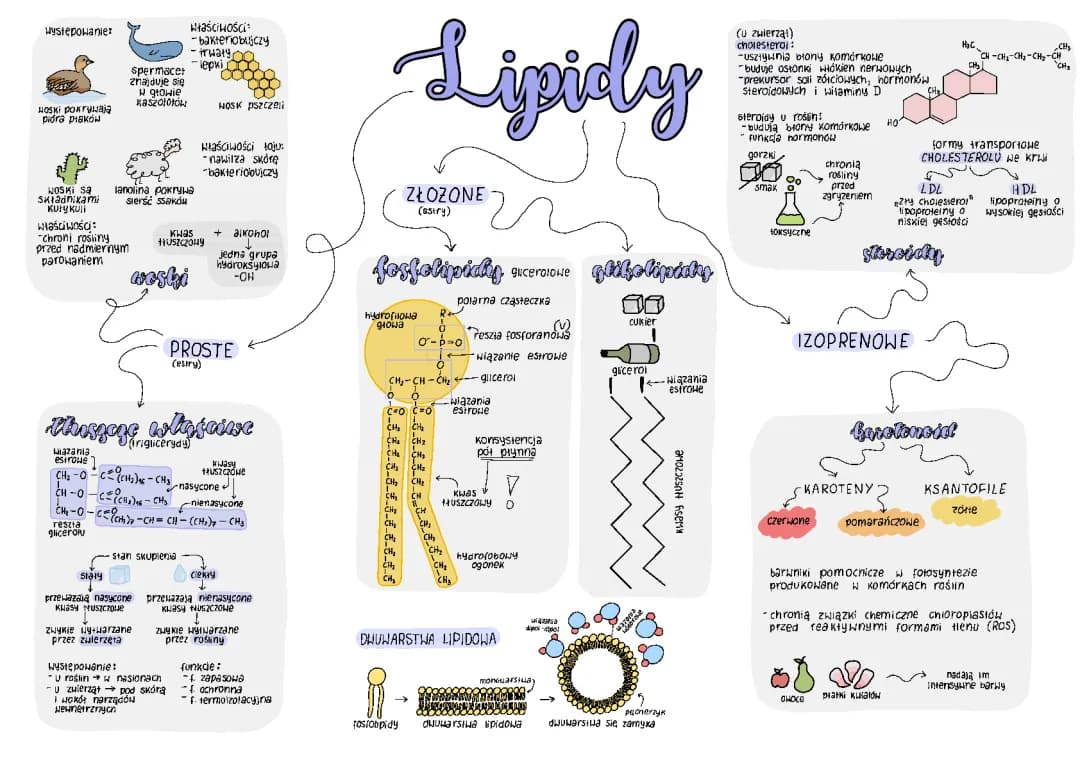 Lipidy
występowanie:
woski pokrywają
pióra ptaków
spermacet
znajduje się
w głowie
kaszalotów
właściwości:
- bakteriobójczy
- trwały
- lepki
wosk pszczeli
woski są
składnikami
kutykuli
lanolina pokrywa
sierść ssaków
właściwości łoju:
- nawilża skórę
- bakteriobójczy
właściwości:
- chroni rośliny
przed nadmiernym
parowaniem
kwas
tłuszczowy
+ alkohol
jedna grupa
hydroksylowa
-OH
woski
PROSTE
(estry)
tłuszcze właściwe
(triglicerydy)
wiązania
estrowe
kwasy
tłuszczowe
CH₂-O-C=O(CH₂)₁₆-CH₃
CH-O-C=O(CH₂)₁₆-CH₃
CH₂-O-C=O(CH₂)₇-CH=CH-(CH₂)₇-CH₃
nasycone
nienasycone
reszta
glicerolu
stan skupienia
stały
ciekły
przeważają nasycone
kwasy tłuszczowe
przeważają nienasycone
kwasy tłuszczowe
zwykle wytwarzane
przez zwierzęta
zwykle wytwarzane
przez rośliny
występowanie:
- u roślin → w nasionach
- u zwierząt → pod skórą
i wokół narządów
wewnętrznych
funkcje:
- f. zapasowa
- f. ochronna
- f. termoizolacyjna
ZŁOŻONE
(estry)
fosfolipidy glicerolowe
hydrofilowa
głowa
polarna cząsteczka
R
O
O⁻-P=O
O
reszta fosforanowa (V)
wiązanie estrowe
CH₂-CH-CH₂
glicerol
O O
wiązania
estrowe
C=O C=O
CH₂ CH₂
konsystencja
pół płynna
kwas
tłuszczowy
!
CH
CH
hydrofobowy
ogonek
CH₃ CH₃
glikolipidy
cukier
glicerol
wiązania
estrowe
kwasy tłuszczowe
DWUWARSTWA LIPIDOWA
fosfolipidy
monowarstwa
dwuwarstwa lipidowa
wiązania
dipol-dipol
pęcherzyk
dwuwarstwa się zamyka
(u zwierząt)
cholesterol:
- usztywnia błony komórkowe
- buduje osłonki włókien nerwowych
- prekursor soli żółciowych, hormonów
steroidowych i witaminy D
H₃C
CH-CH₂-CH₂-CH₂-CH
CH₃
CH₃
CH₃
CH₃
HO
steroidy u roślin:
- budują błony komórkowe
- funkcja hormonów
gorzki
smak
toksyczne
chronią
rośliny
przed
zgryzieniem
formy transportowe
CHOLESTEROLU we krwi
LDL
"zły cholesterol"
lipoproteiny o
niskiej gęstości
HDL
lipoproteiny o
wysokiej gęstości
steroidy
IZOPRENOWE
karotenoid
KAROTENY
czerwone
pomarańczowe
KSANTOFILE
żółte
barwniki pomocnicze w fotosyntezie
produkowane w komórkach roślin
- chronią związki chemiczne chloroplastów
przed reaktywnymi formami tlenu (ROS)
owoce
płatki kwiatów
nadają im
intensywne barwy